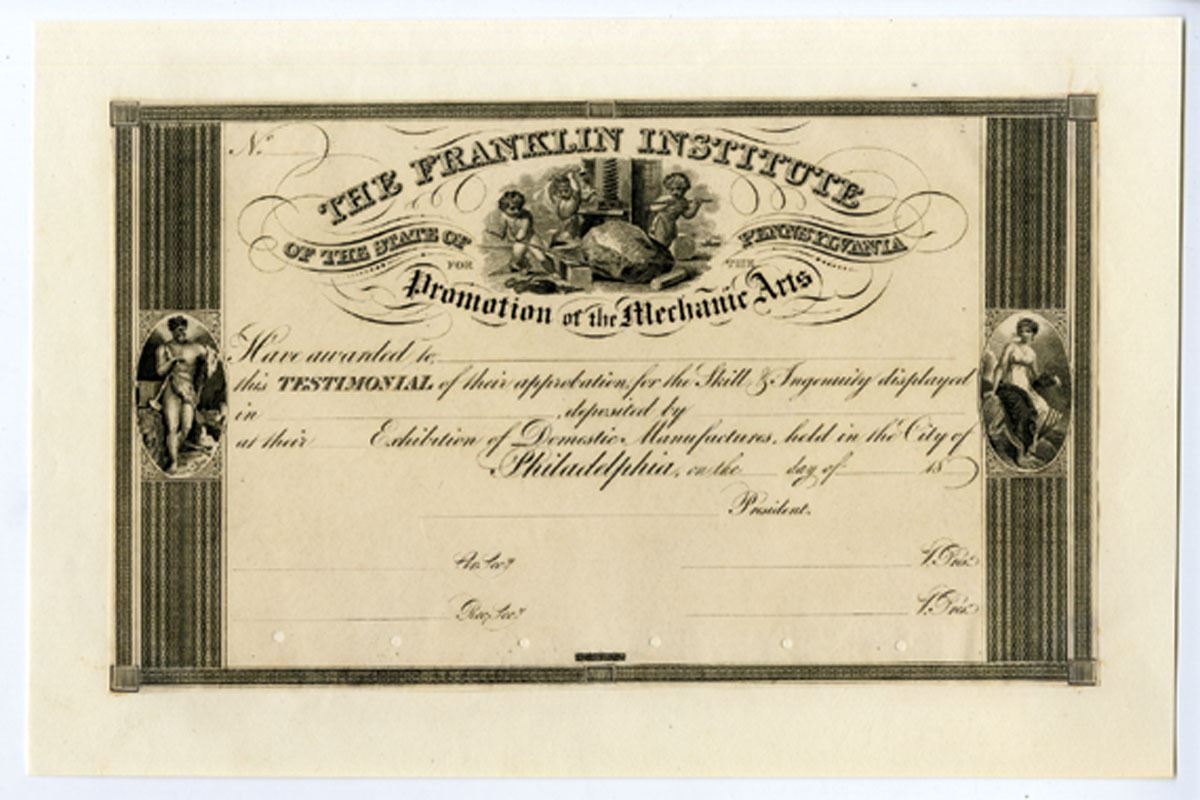 No.
THE FRANKLIN INSTITUTE
OF THE STATE OF PENNSYLVANIA
FOR THE
Promotion of the Mechanic Arts
Have awarded to
this TESTIMONIAL of their approbation, for the Skill & Ingenuity displayed
in , deposited by
at their Exhibition of Domestic Manufactures, held in the City of
Philadelphia, on the day of 18
President.
V. Pres.
Rec. Sec.y V. Pres.